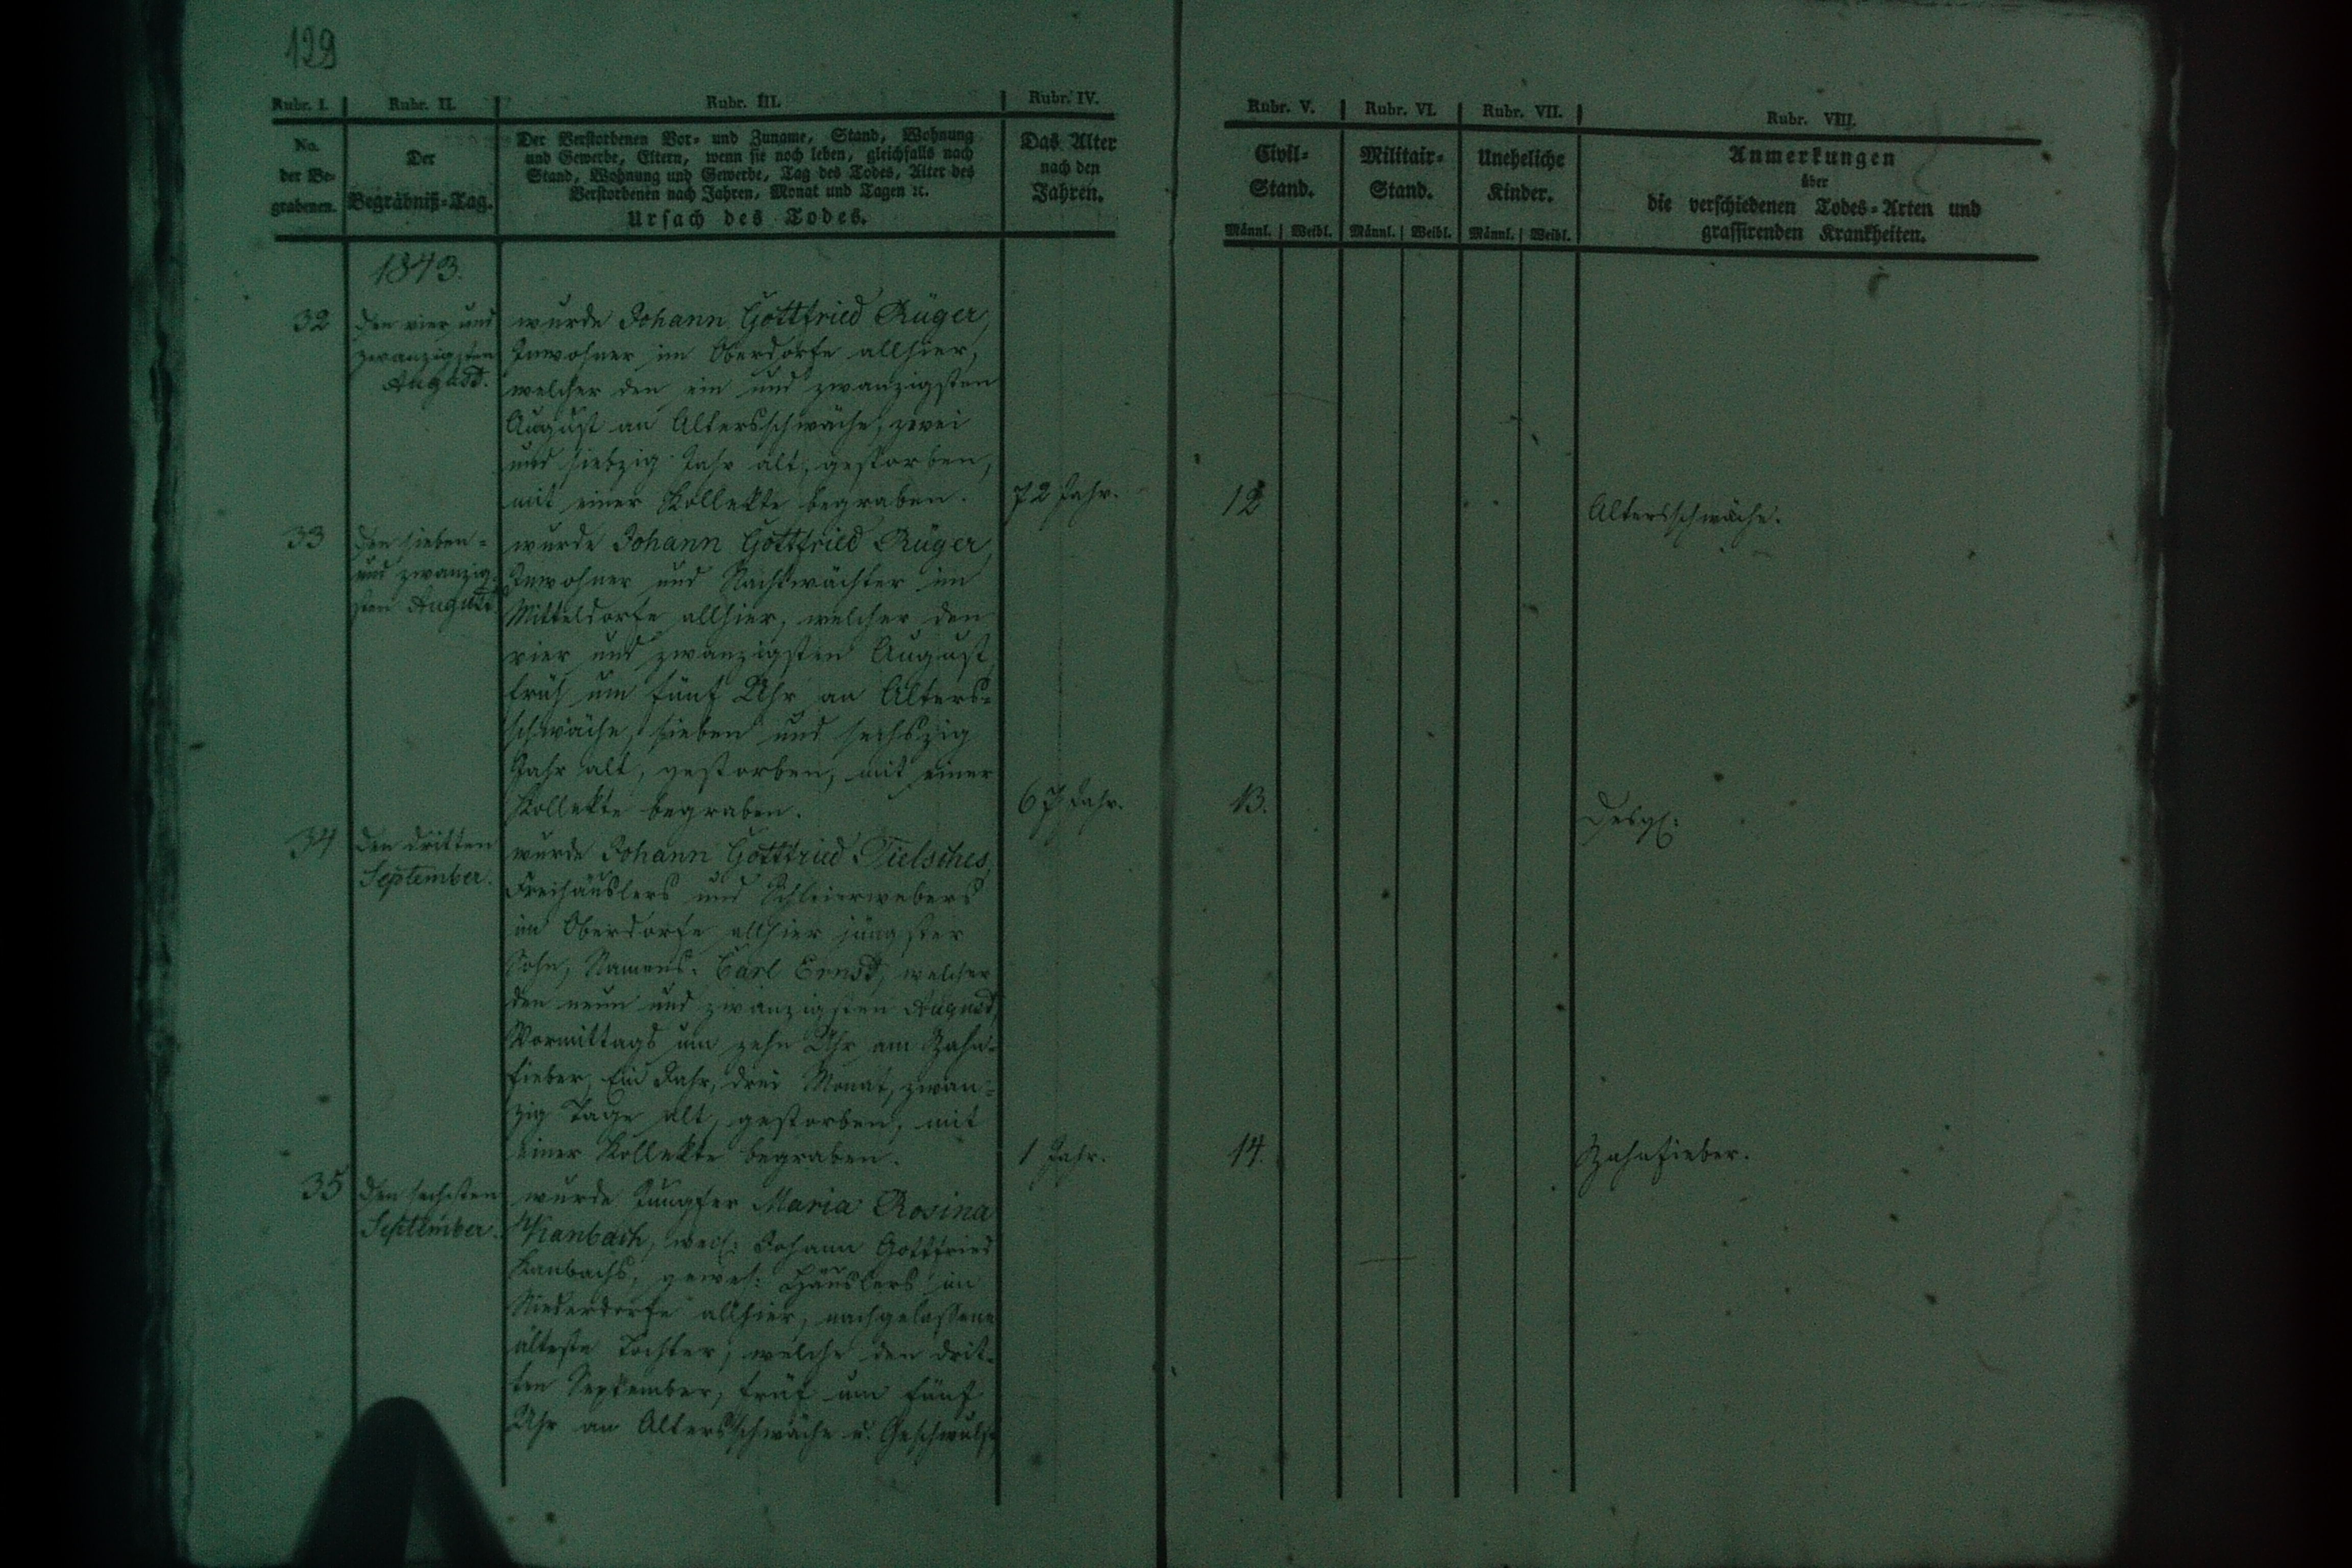 129
Rubr. I. Rubr. II. Rubr. III. Rubr. IV. Rubr. V. Rubr. VI. Rubr. VII. Rubr. VIII.
No. der Be-grabenen.
Der Begräbniß-Tag.
Der Verstorbenen Vor- und Zuname, Stand, Wohnung
und Gewerbe, Eltern, wenn sie noch leben, gleichfalls nach
Stand, Wohnung und Gewerbe, Tag des Todes, Alter des
Verstorbenen nach Jahren, Monat und Tagen ꝛc.
Ursach des Todes.
Das Alter
nach den
Jahren.
Civil-
Stand.
Männl. Weibl.
Militair-
Stand.
Männl. Weibl.
Uneheliche
Kinder.
Männl. Weibl.
Anmerkungen
über
die verschiedenen Todes-Arten und
grassirenden Krankheiten.
1843.
32
den vier und
zwanzigsten
August.
wurde Johann Gottfried Rüger,
Inwohner im Oberdorfe allhier,
welcher den ein und zwanzigsten
August an Altersschwäche, zwei
und siebzig Jahr alt, gestorben,
mit einer Kollekte begraben.
72 Jahr.
12
Altersschwäche.
33
den sieben-
und zwanzig-
sten August.
wurde Johann Gottfried Rüger,
Inwohner und Nachtwächter im
Mitteldorfe allhier, welcher den
vier und zwanzigsten August,
früh um fünf Uhr an Alters-
schwäche, sieben und sechszig
Jahr alt, gestorben, mit einer
Kollekte begraben.
67 Jahr.
13.
Desgl:
34
den dritten
September.
wurde Johann Gottfried Tielsches,
Freihäuslers und Schleierwebers
im Oberdorfe allhier jüngster
Sohn, Namens: Carl Ernst, welcher
den neun und zwanzigsten August,
Vormittags um zehn Uhr am Zahn-
fieber, Ein Jahr, drei Monat, zwan-
zig Tage alt, gestorben, mit
einer Kollekte begraben.
1 Jahr.
14.
Zahnfieber.
35
den sechsten
September.
wurde Jungfer Maria Rosina
Kanbach, weil: Johann Gottfried
Kanbachs, gewes: Häuslers im
Niederdorfe allhier, nachgelassene
älteste Tochter, welche den drit-
ten September, früh um fünf
Uhr an Altersschwäche u. Geschwulst,